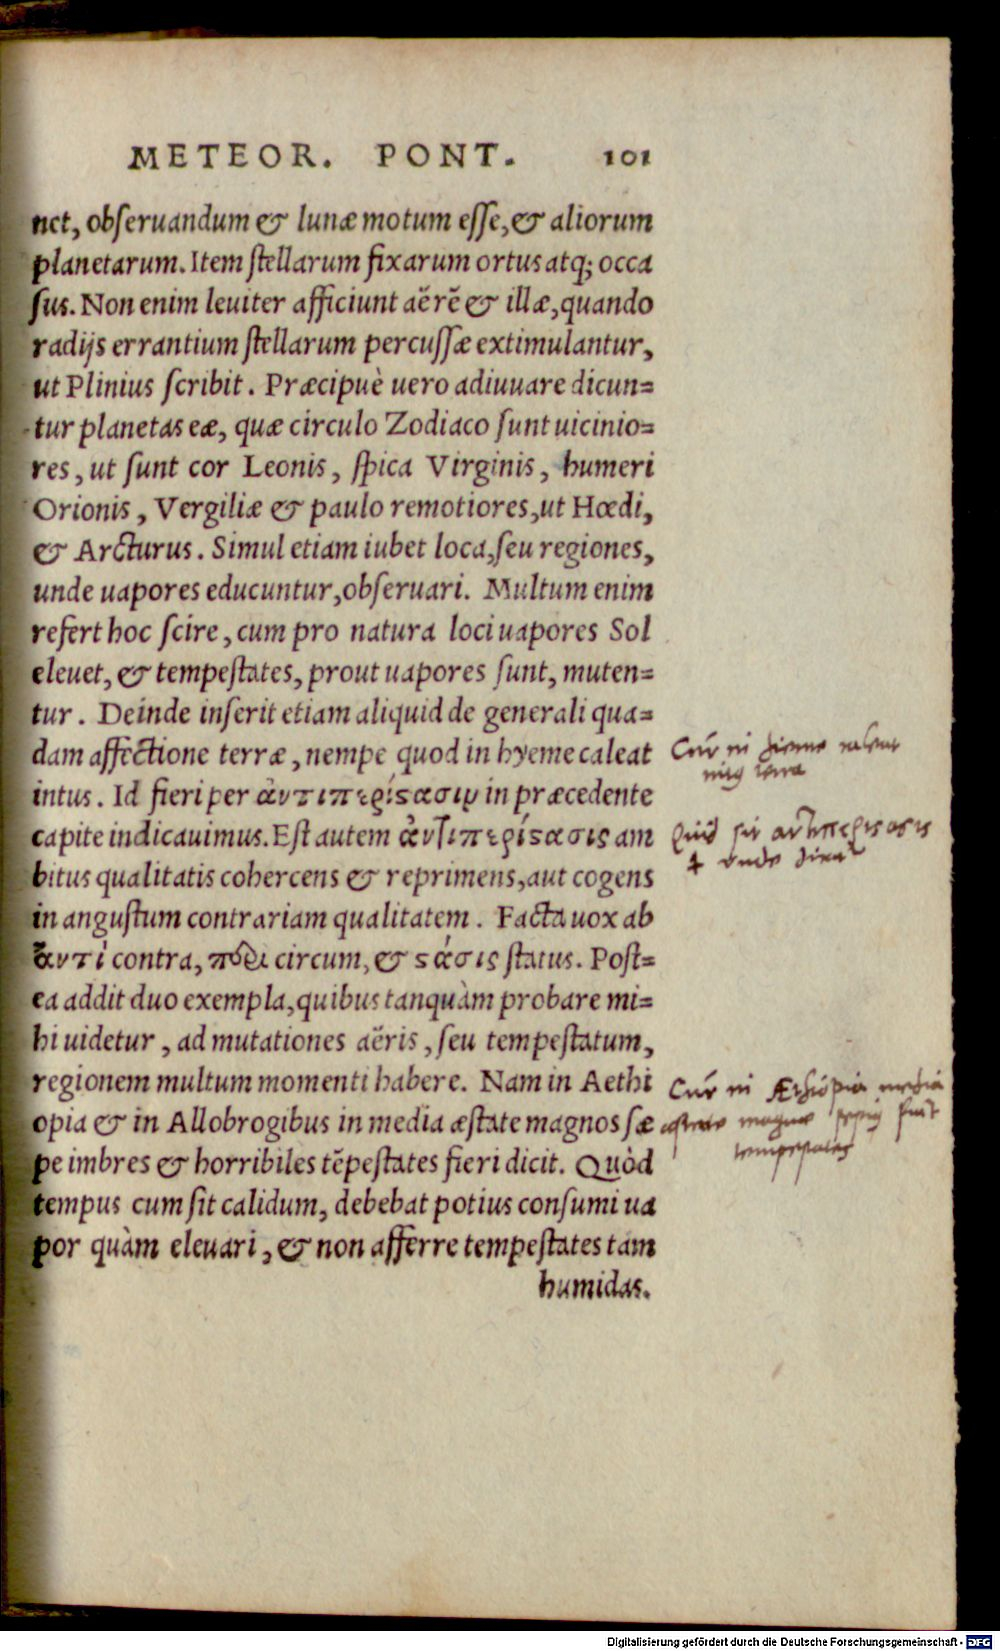 METEOR. PONT. 101
net, obſeruandum & lunæ motum eſſe, & aliorum
planetarum. Item ſtellarum fixarum ortus atq; occa
ſus. Non enim leuiter afficiunt aërē & illæ, quando
radijs errantium ſtellarum percuſſæ extimulantur,
ut Plinius ſcribit. Præcipuè uero adiuuare dicun=
tur planetas eæ, quæ circulo Zodiaco ſunt uicinio=
res, ut ſunt cor Leonis, ſpica Virginis, humeri
Orionis, Vergiliæ & paulo remotiores, ut Hœdi,
& Arcturus. Simul etiam iubet loca, ſeu regiones,
unde uapores educuntur, obſeruari. Multum enim
refert hoc ſcire, cum pro natura loci uapores Sol
eleuet, & tempeſtates, prout uapores ſunt, muten=
tur. Deinde inſerit etiam aliquid de generali qua=
dam affectione terræ, nempe quod in hyeme caleat
intus. Id fieri per ἀντιπερίϛασιν in præcedente
capite indicauimus. Eſt autem ἀντιπερίϛασις am
bitus qualitatis cohercens & reprimens, aut cogens
in anguſtum contrariam qualitatem. Facta uox ab
ἀντὶ contra, περὶ circum, & ϛάσις ſtatus. Poſt=
ea addit duo exempla, quibus tanquàm probare mi=
hi uidetur, ad mutationes aëris, ſeu tempeſtatum,
regionem multum momenti habere. Nam in Aethi
opia & in Allobrogibus in media æſtate magnos ſæ
pe imbres & horribiles tēpeſtates fieri dicit. Quòd
tempus cum ſit calidum, debebat potius conſumi ua
por quàm eleuari, & non afferre tempeſtates tam
humidas.
Cur in hieme caleat
terra
Quid sit αντιπεριςασις
unde
Cur in Æthiopia media
æstate magnæ sæpe fiāt
tempestates
Digitalisierung gefördert durch die Deutsche Forschungsgemeinschaft - DFG